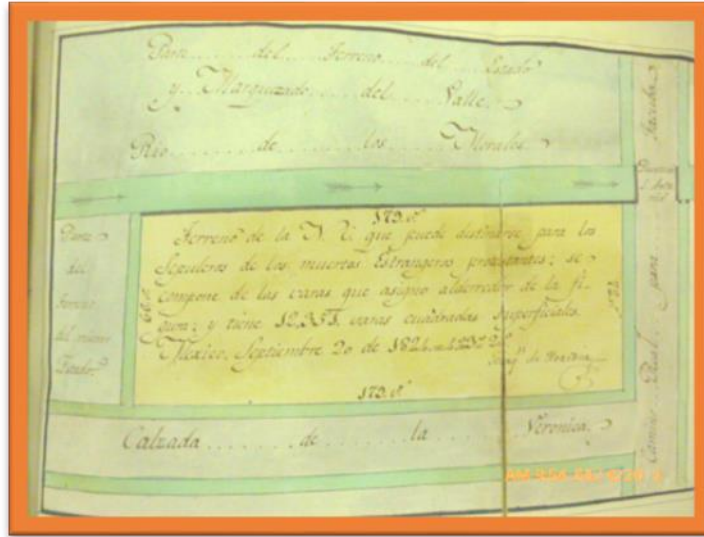 Parte del Terreno del Estado
y Marquizado del Valle.
Rio de los Morales.
Parte
del
terreno
del mismo
173. v.s
Terreno de la N. C. que puede distinarse para los
Sepulcros de los muertos Estrangeros protestantes; se
compone de las varas que asigno alderredor de la fi-
gura; y tiene 12,355 varas cuadradas superficiales.
Mexico, Septiembre 20 de 1824.
173. v.s
Calzada de la Veronica.
Camino Real para Tacuba